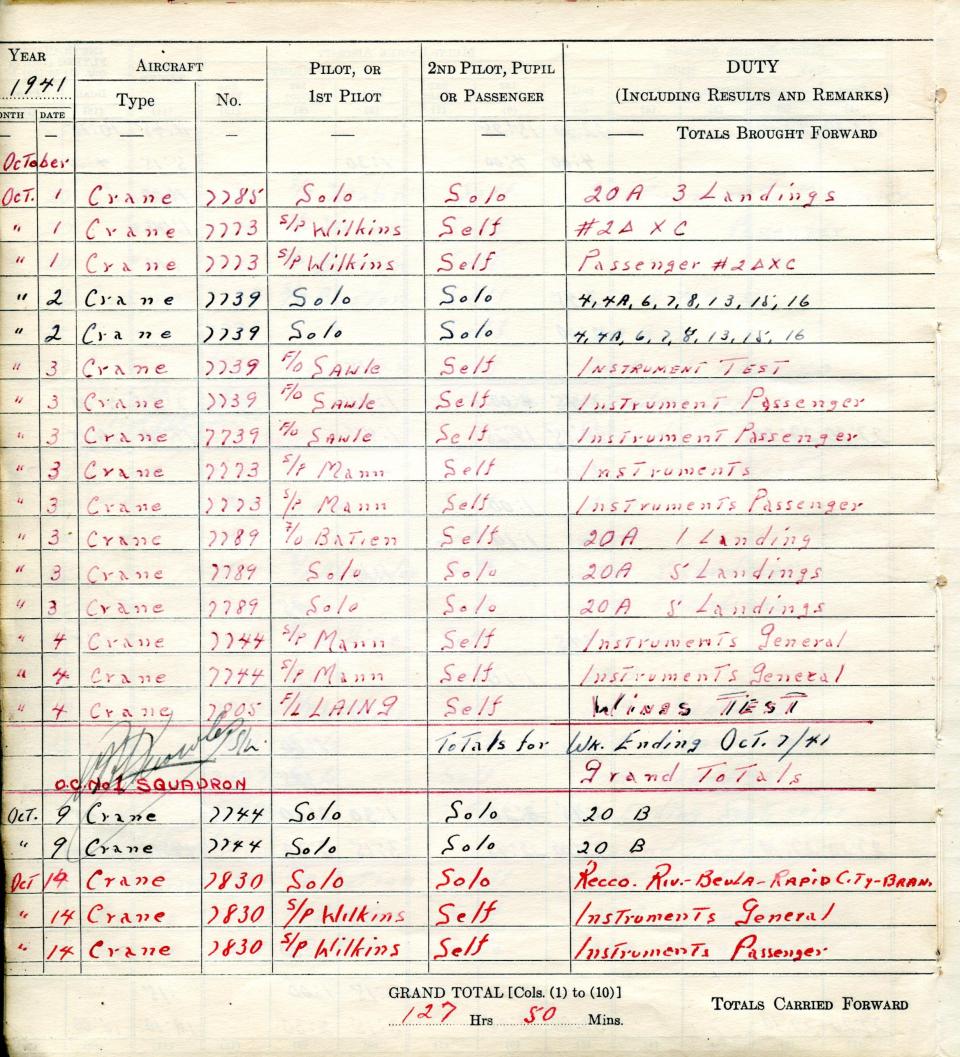 YEAR 1941 AIRCRAFT PILOT, OR 1ST PILOT 2ND PILOT, PUPIL OR PASSENGER DUTY (INCLUDING RESULTS AND REMARKS)
MONTH DATE Type No.
— — — — — — — TOTALS BROUGHT FORWARD
October
Oct. 1 Crane 7785 Solo Solo 20A 3 Landings
" 1 Crane 7773 S/P Wilkins Self #2Δ XC
" 1 Crane 7773 S/P Wilkins Self Passenger #2ΔXC
" 2 Crane 7739 Solo Solo 4, 4A, 6, 7, 8, 13, 15, 16
" 2 Crane 7739 Solo Solo 4, 4A, 6, 7, 8, 13, 15, 16
" 3 Crane 7739 F/O Sawle Self Instrument Test
" 3 Crane 7739 F/O Sawle Self Instrument Passenger
" 3 Crane 7739 F/O Sawle Self Instrument Passenger
" 3 Crane 7773 S/P Mann Self Instruments
" 3 Crane 7773 S/P Mann Self Instruments Passenger
" 3 Crane 7789 F/O Self 20A 1 Landing
" 3 Crane 7789 Solo Solo 20A 5 Landings
" 3 Crane 7789 Solo Solo 20A 5 Landings
" 4 Crane 7744 S/P Mann Self Instruments General
" 4 Crane 7744 S/P Mann Self Instruments General
" 4 Crane 7805 F/L LAING Self WINGS TEST
S/L. Totals for Wk. Ending Oct. 7/41
O.C. No 1 SQUADRON Grand Totals
Oct. 9 Crane 7744 Solo Solo 20 B
" 9 Crane 7744 Solo Solo 20 B
Oct 14 Crane 7830 Solo Solo Recco. Riv.-Beula-Rapid City-Bran.
" 14 Crane 7830 S/P Wilkins Self Instruments General
" 14 Crane 7830 S/P Wilkins Self Instruments Passenger
GRAND TOTAL [Cols. (1) to (10)] TOTALS CARRIED FORWARD
127 Hrs 50 Mins.